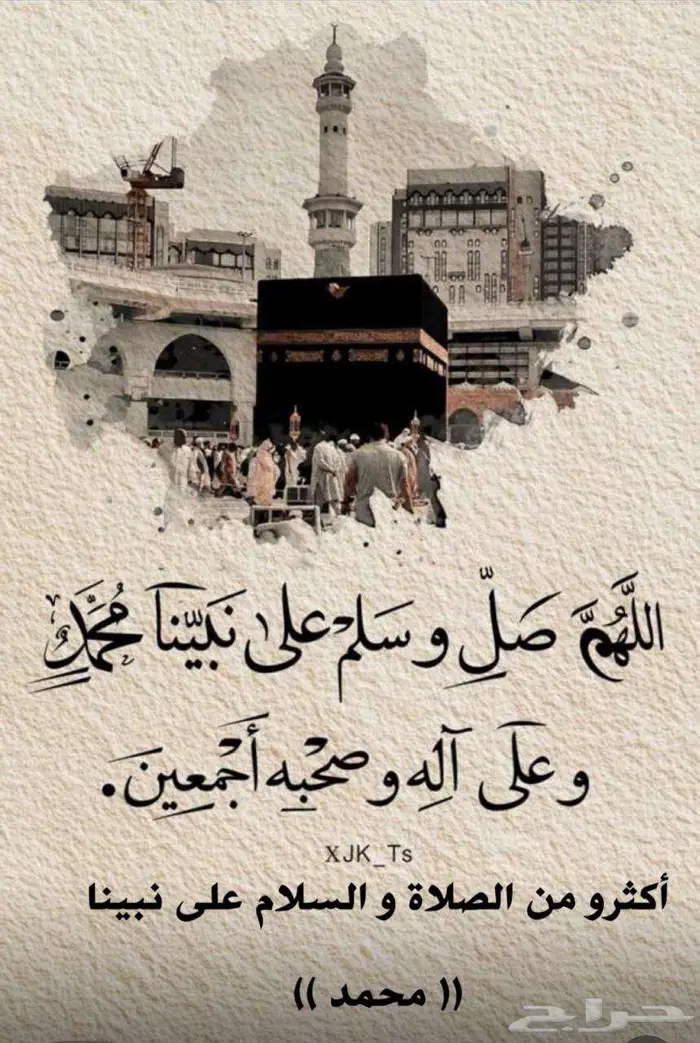 اللَّهُمَّ صَلِّ وسَلمْ علىٰ نَبيّنا مُحمَّدٍ
وعلَى آلِه وصحْبِه أجْمعِين.
XJK_Ts
أكثرو من الصلاة و السلام على نبينا
(( محمد ))
حراج